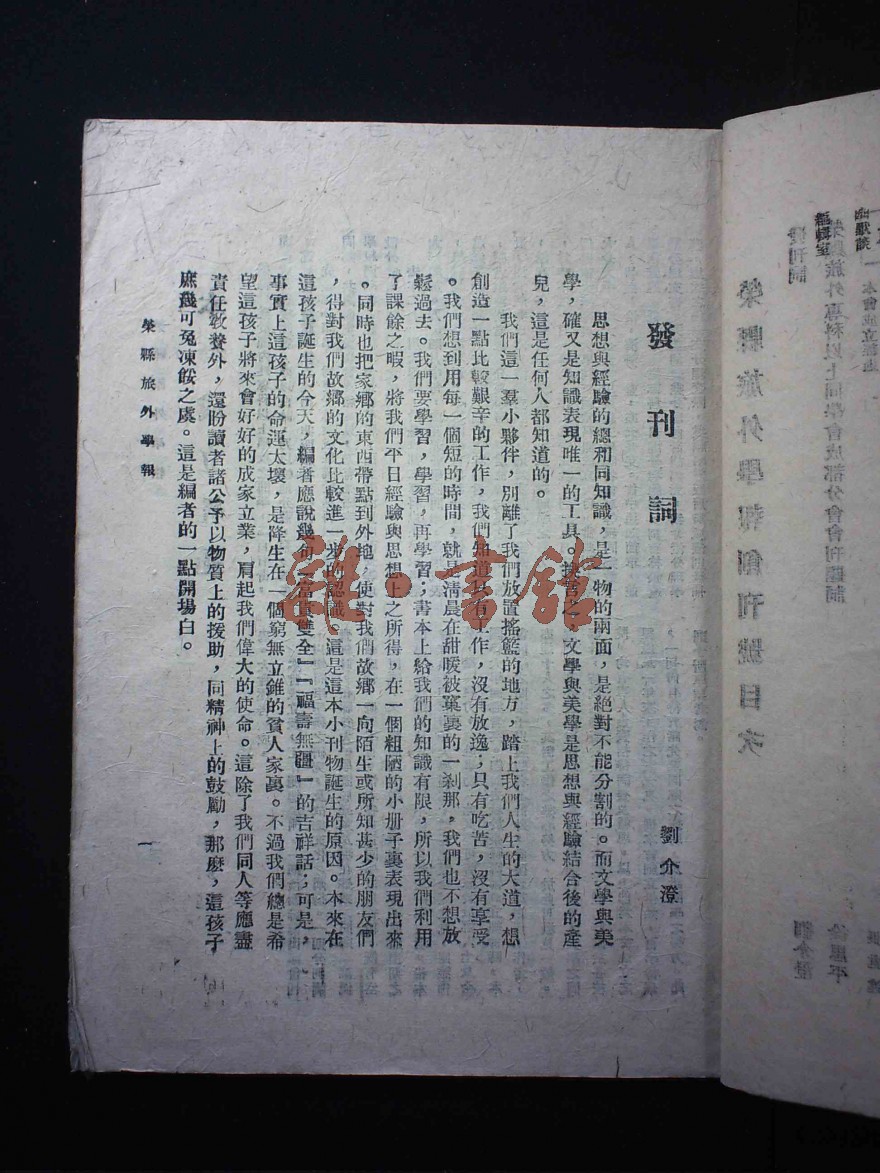 發刊詞
劉介澄
思想與經驗的總和同知識，是一物的兩面，是絕對不能分割的。而文學與美
學，確又是知識表現唯一的工具。換言之，文學與美學是思想與經驗結合後的產
兒，這是任何人都知道的。
我們這一羣小夥伴，別離了我們放置搖籃的地方，踏上我們人生的大道，想
創造一點比較艱辛的工作，我們知道只有工作，沒有放逸；只有吃苦，沒有享受
。我們想到用每一個短的時間，就是清晨在甜暖被窠裏的一剎那，我們也不想放
鬆過去。我們要學習，學習，再學習；書本上給我們的知識有限，所以我們利用
了課餘之暇，將我們平日經驗與思想上之所得，在一個粗陋的小册子裏表現出來
。同時也把家鄉的東西帶點到外地，使對我們故鄉一向陌生或所知甚少的朋友們
，得對我們故鄉的文化比較進一步的認識。這是這本小刊物誕生的原因。本來在
這孩子誕生的今天，編者應說幾句『富貴雙全』『福壽無疆』的吉祥話；可是，
事實上這孩子的命運太壞，是降生在一個窮無立錐的貧人家裏。不過我們總是希
望這孩子將來會好好的成家立業，肩起我們偉大的使命。這除了我們同人等應盡
責任敎養外，還盼讀者諸公予以物質上的援助，同精神上的鼓勵，那麽，這孩子
庶幾可免凍餒之虞。這是編者的一點開場白。
榮縣旅外學報
一
雜·書館
榮縣旅外學報創刊號目次
榮縣旅外專科以上同學會成都分會會刊題詞
發刊詞
劉介澄
編輯室